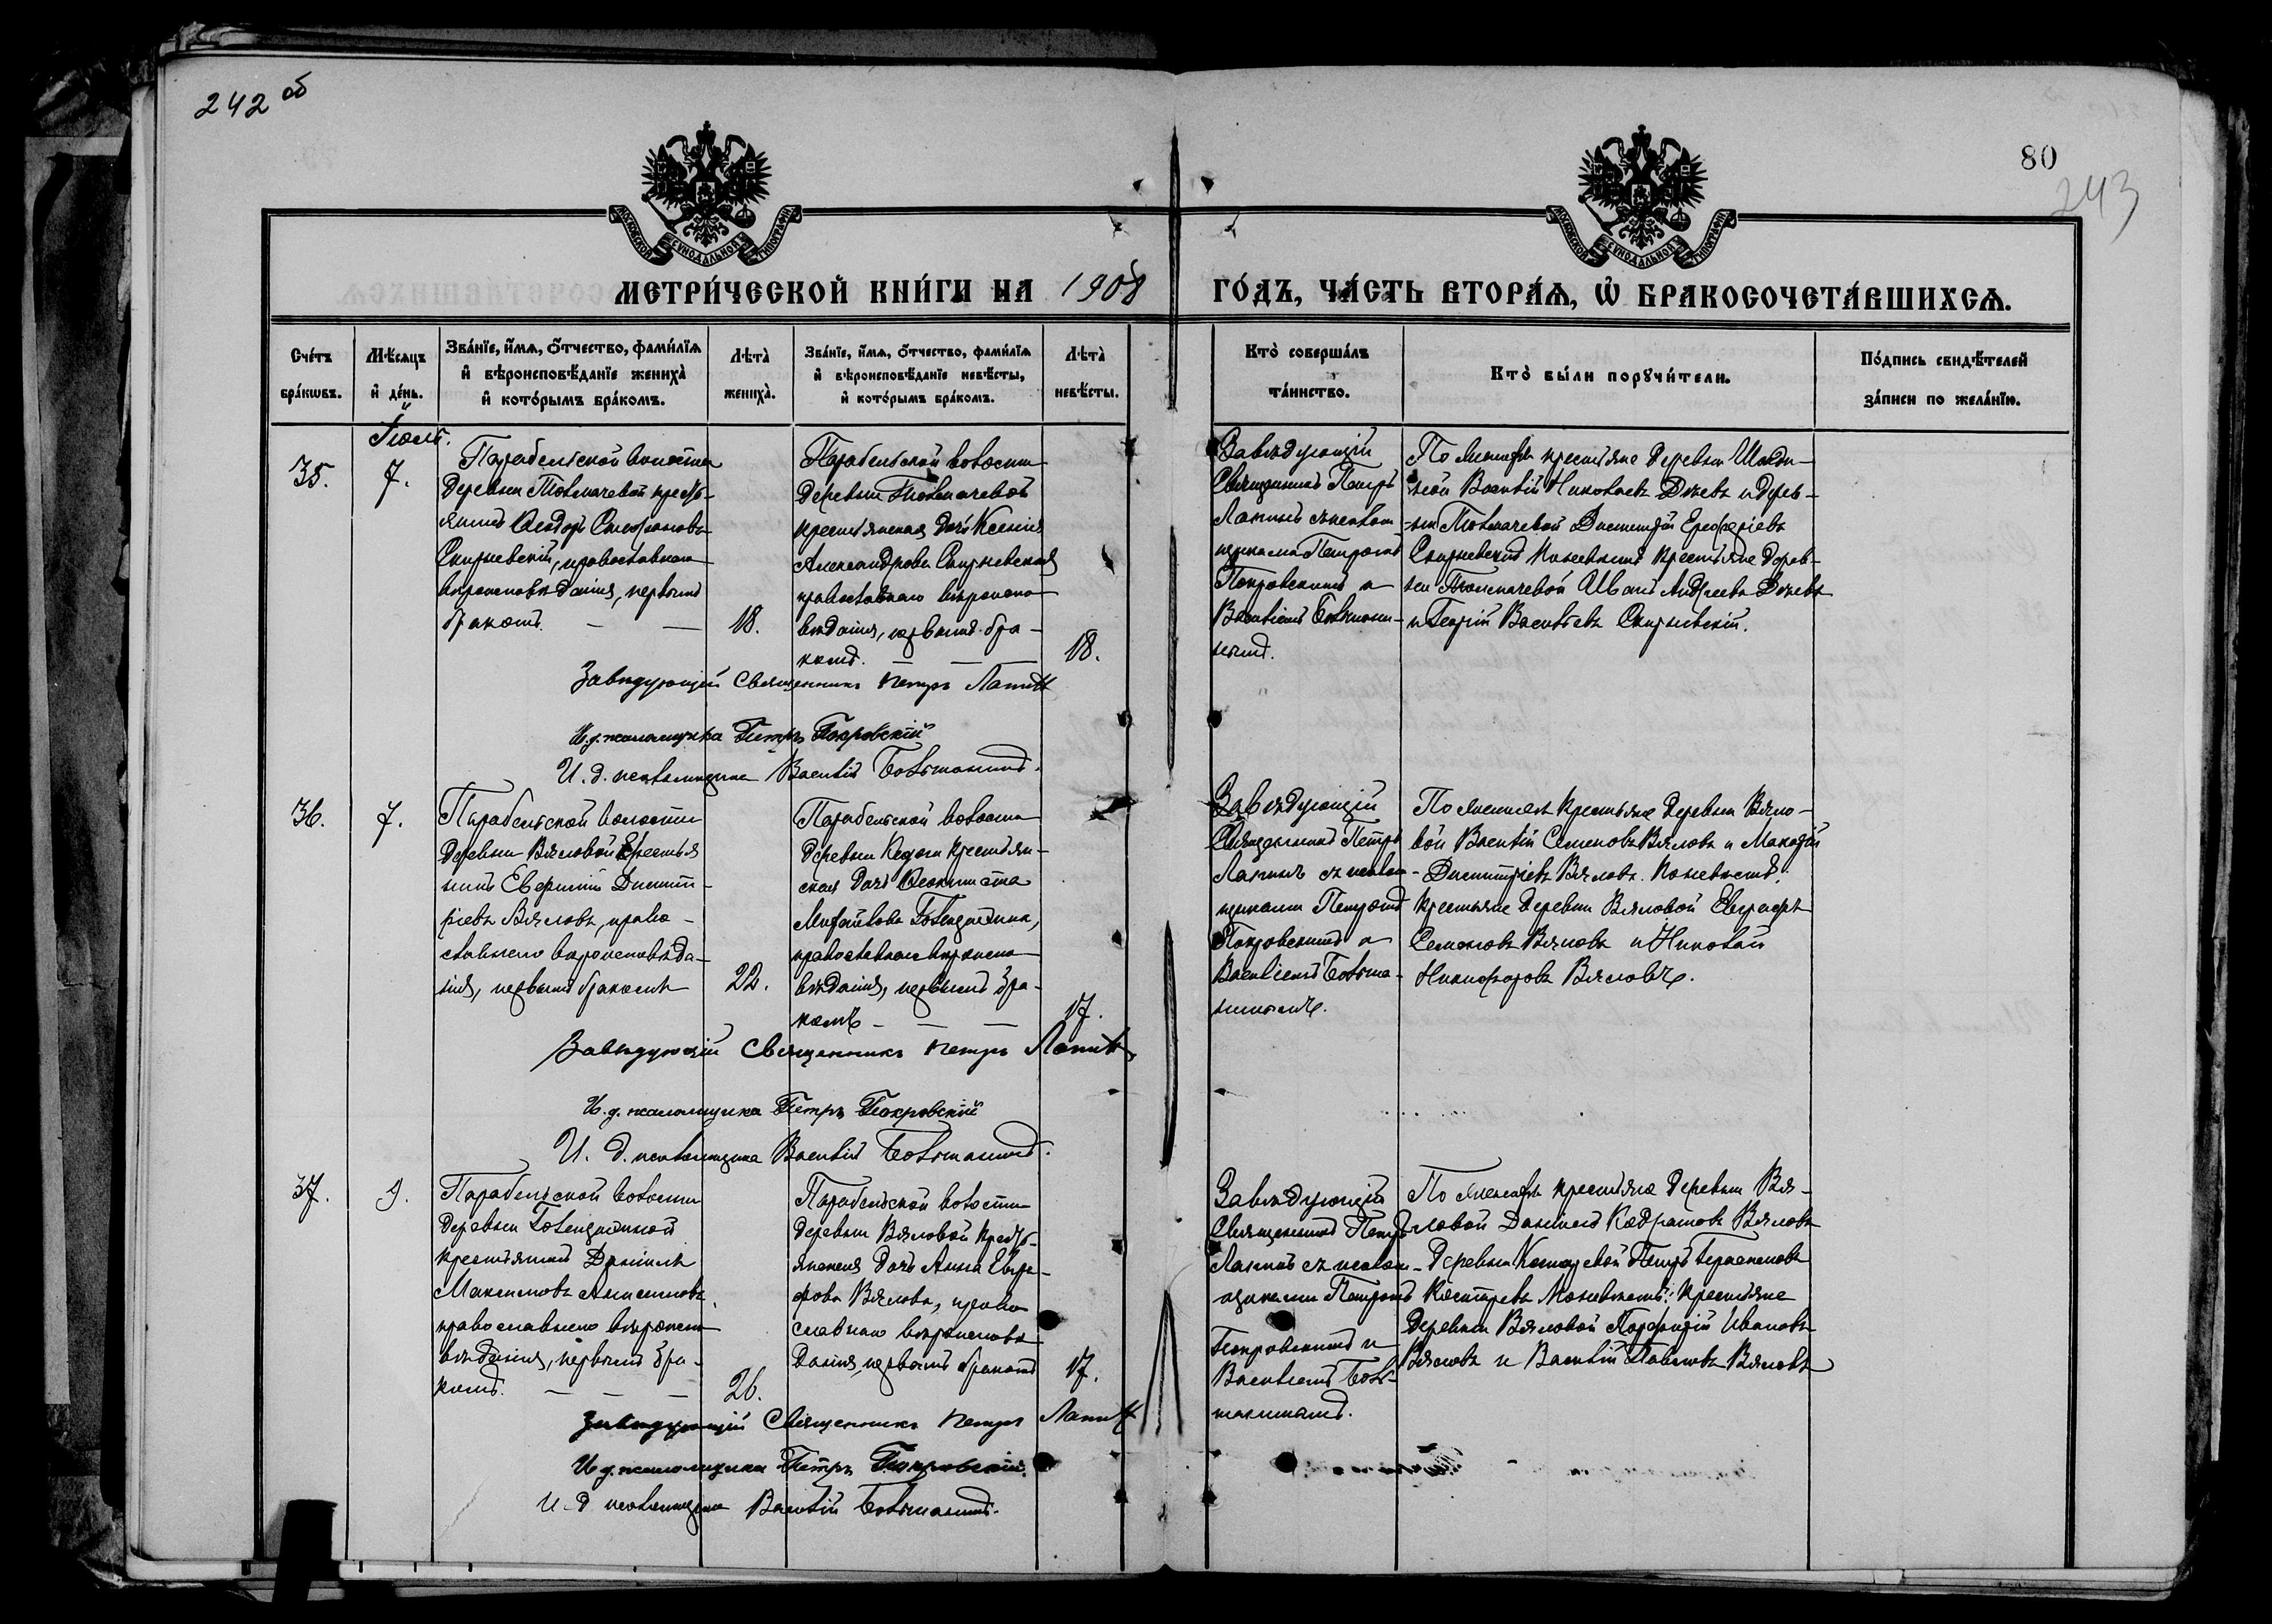 242 об
80
243
МОСКОВСКОЙ СѴНОДАЛЬНОЙ ТИПОГРАФІИ
МОСКОВСКОЙ СѴНОДАЛЬНОЙ ТИПОГРАФІИ
МЕТРИ́ЧЕСКОЙ КНИ́ГИ НА 1908 ГО́ДЪ, ЧА́СТЬ ВТОРА́Ѧ, Ѡ҆ БРАКОСОЧЕТА́ВШИХСѦ.
Сче́тъ бра́кѡвъ.
Мѣ́сяцъ и҆ де́нь.
Зва́нїе, и҆́мѧ, ѻ҆́тчество, фами́лїѧ
и҆ вѣроисповѣ́данїе жениха̀
и҆ кото́рымъ бра́комъ.
Лѣта̀ жениха̀.
Зва́нїе, и҆́мѧ, ѻ҆́тчество, фами́лїѧ
и҆ вѣроисповѣ́данїе невѣ́сты,
и҆ кото́рымъ бра́комъ.
Лѣта̀ невѣ́сты.
Кто̀ соверша́лъ та́инство.
Кто̀ бы́ли порꙋчи́тели.
По́дпись свидѣ́телей
за́писи по жела́нїю.
Іюль.
35.
7.
Парабельской волости
деревни Толмачевой кресть-
янинъ Ѳеодоръ Стефановъ
Скирневскій, православнаго
вѣроисповѣданія, первымъ
бракомъ. — —
18.
Парабельской волости
деревни Толмачевой
крестьянская дочь Ксенія
Александрова Скирневская
православнаго вѣроиспо-
вѣданія, первымъ бра-
комъ. — — —
18.
Завѣдующій
Священникъ Петръ
Лапинъ съ псалом-
щиками Петромъ
Покровскимъ и
Василіемъ Большани-
нымъ.
По женихѣ крестьяне деревни
Василій Николаевъ и дерев-
ни Толмачевой Димитрій Ерофеевъ
Скирневскій По невѣстѣ крестьяне дерев-
ни Толмачевой Иванъ Андреевъ
и Георгій Васильевъ Скирневскій.
Завѣдующій Священникъ Петръ Лапинъ
И. д. псаломщика Петръ Покровскій
И. д. псаломщика Василій Большанинъ.
36.
7.
Парабельской волости
деревни Вяловой Крестья
нинъ Евфимій Димит-
ріевъ Вяловъ, право-
славнаго вѣроисповѣда-
нія, первымъ бракомъ
22.
Парабельской волости
деревни крестьян-
ская дочь Ѳеоктиста
Михайлова Голещихина,
православнаго вѣроиспо-
вѣданія, первымъ бра-
комъ — — —
17.
Завѣдующій
Священникъ Петръ
Лапинъ съ псалом-
щиками Петромъ
Покровскимъ и
Василіемъ Больша-
нинымъ.
По женихѣ крестьяне деревни Вяло-
вой Василій Семеновъ Вяловъ и Макарій
Димитріевъ Вяловъ. По невѣстѣ:
крестьяне деревни Вяловой Евграфъ
Семеновъ Вяловъ и Николай
Никифоровъ Вяловъ.
Завѣдующій Священникъ Петръ Лапинъ
И. д. псаломщика Петръ Покровскій
И. д. псаломщика Василій Большанинъ.
37.
9.
Парабельской волости
деревни Голещихиной
крестьянинъ Даніилъ
Максимовъ Анисимовъ,
православнаго вѣроиспо-
вѣданія, первымъ бра-
комъ. — — —
26.
Парабельской волости
деревни Вяловой кресть-
янская дочь Анна Евгра-
фова Вялова, право
славнаго вѣроисповѣ-
данія, первымъ бракомъ
17.
Завѣдующій
Священникъ Петръ
Лапинъ съ псалом-
щиками Петромъ
Покровскимъ и
Василіемъ Боль-
шанинымъ.
По женихѣ крестьяне деревни Вя-
ловой Даніилъ Кодратовъ Вяловъ
деревни Костаревой Петръ Герасимовъ
Костаревъ По невѣстѣ: крестьяне
деревни Вяловой Порфирій Ивановъ
Вяловъ и Василій Павловъ Вяловъ
Завѣдующій Священникъ Петръ Лапинъ
И. д. псаломщика Петръ Покровскій.
И. д. псаломщика Василій Большанинъ.